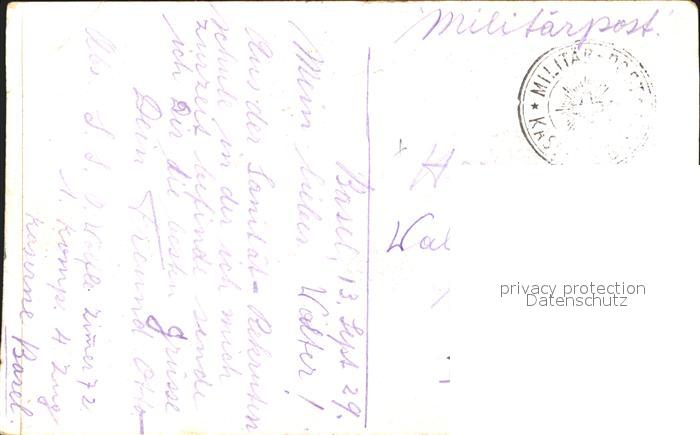 Militärpost.
MILITÄR-POST
Basel, 13. Sept 29.
Mein lieber Walter!
Aus der Sanität-Rekruten
schule in der ich mich
zurzeit befinde sende
ich Dir die besten Grüsse
Dein Freund Otto
Abs. S. S. Zimer 72.
1. Komp. 4 Zug
Kaserne Basel.
H
Wal
privacy protection
Datenschutz